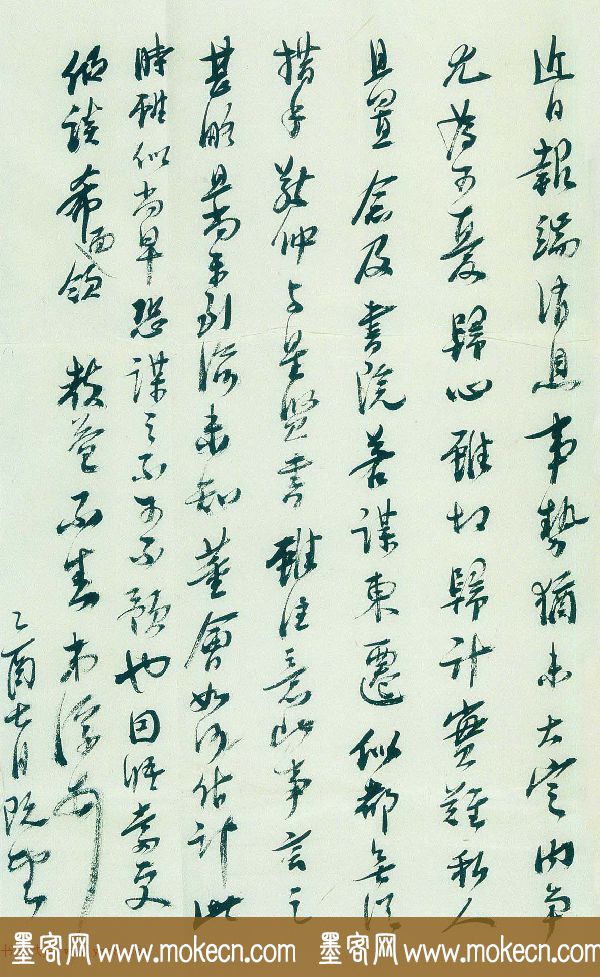 近日報端消息事勢猶未大定內爭
尤為可憂歸心雖切歸計實難私人
且置念及書院若謀東遷似都無從
措手敬仲與星賢書雖注意此事言之
甚略且尚未到滬未知董會如何估計此
時雖似尚早恐謀之不可不預也因晤壽更
偕談希面領 教益不盡 南深安
乙酉七月既望
墨客网 www.mokecn.com 墨客网 www.mokecn.com